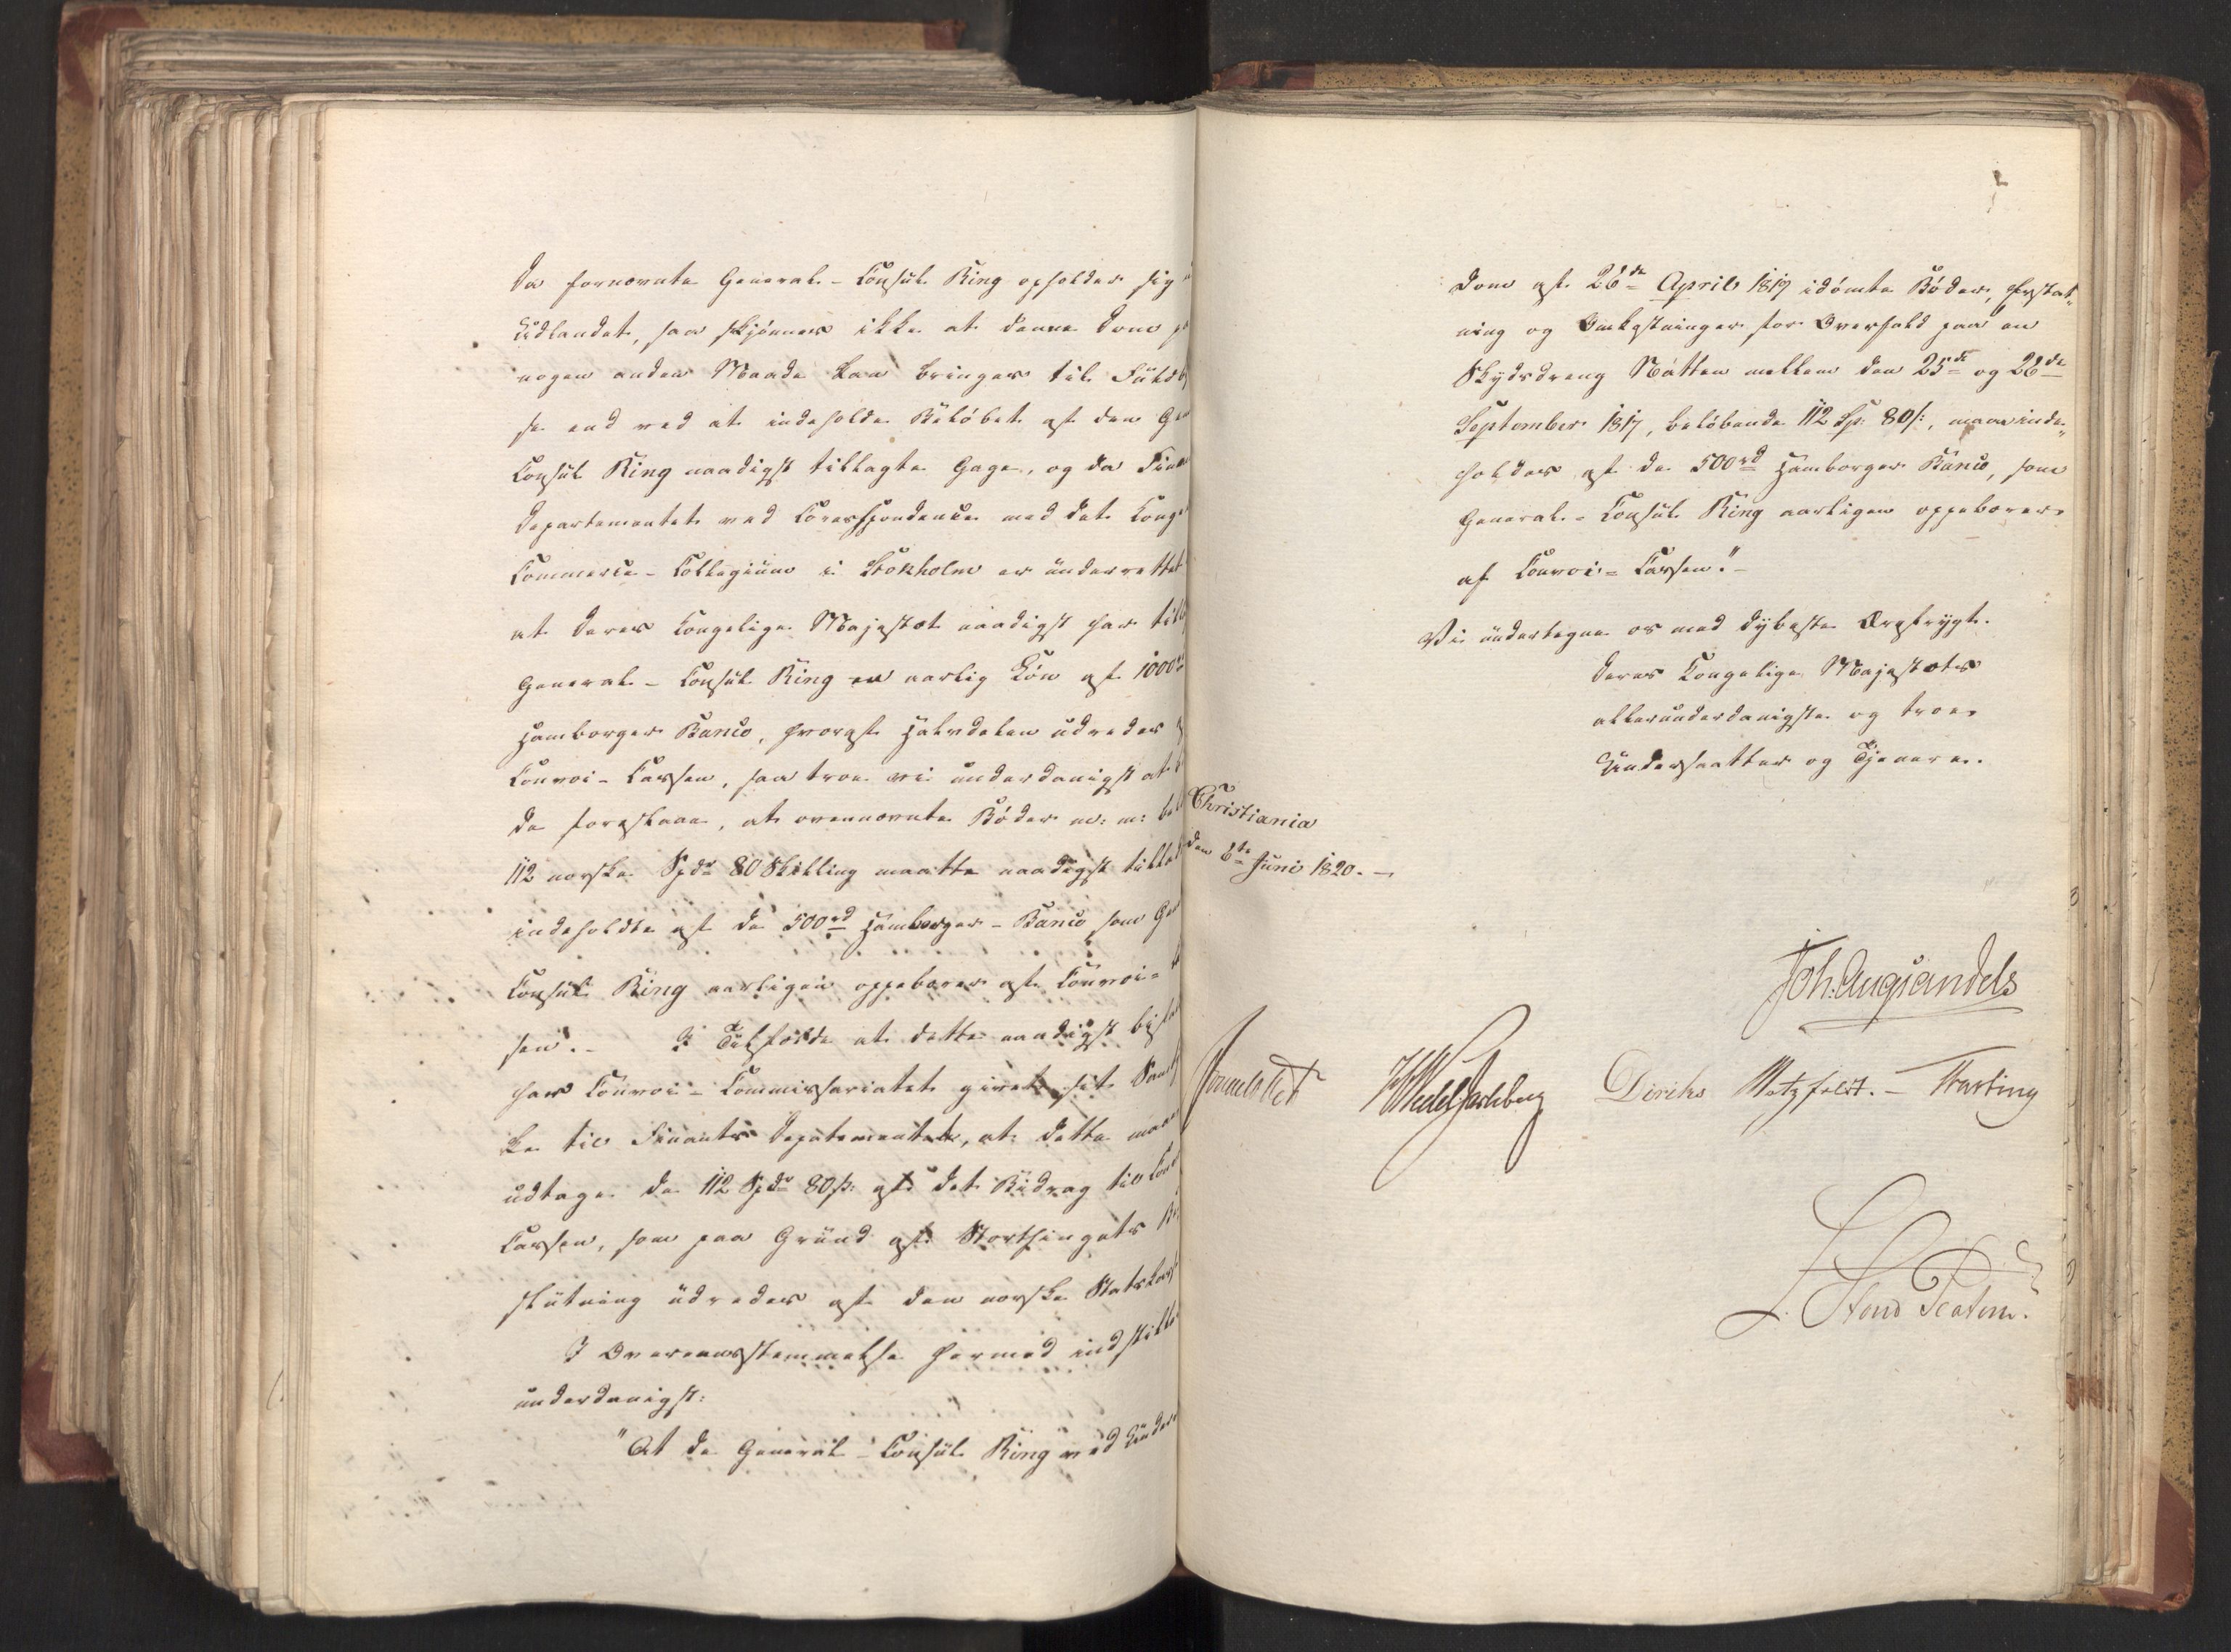 Da fornevnte General-Consul Ring opholder sig
Udlandet, saa skjønnes ikke at denne Dom
nogen anden Maade kan bringes til Fuldb
se end ved at indeholde Beløbet af den Ge
Consul Ring naadigst tillagte Gage, og da Finan
Departementet ved Corresspondence med det Konge
Commerce-Collegium i Stokholm er underrettet
at Deres Kongelige Majestæt naadigst har till
General-Consul Ring en aarlig Løn af 1000
Hamborger Banco, hvoraf Halvdelen udredes
Convoi-Cassen, saa troe vi underdanigst at
de foreslaae, at ovennevnte Bøder m: m: bel
112 norske Spdr 80 Skilling maatte naadigst tillad
indeholdte af de 500rd Hamborger-Banco som Gen
Consul Ring aarligen oppebærer af Convoi-
sen. - I Tilfælde at dette naadigst bifal
har Convoi-Commissariatet givet sit Samty
ke til Finants Departementet, at dette maa
udtage de 112 Spdr 80 s: af det Bidrag til Conv
Cassen, som paa Grund af Storthingets Be
slutning udredes af den norske Statskas
I Overeensstemmelse hermed indstille
underdanigst:
"At de General-Consul Ring ved Under
Dom af 26de April 1819 idømte Bøder, Erstat„
ning og Omkostninger for Overfald paa en
Skydsdreng Natten mellem den 25de og 26de
September 1817, beløbende 112 Sp: 80 s:, maa inde„
holdes af de 500rd Hamborger Banco, som
General-Consul Ring aarligen oppebærer
af Convoi-Cassen." -
Vi undertegne os med dybeste Ærefrygt.
Deres Kongelige Majestæts
allerunderdanigste og troe
Undersaatter og Tjenere.
Christiania
den 6te Juni 1820. -
Joh: Aug: Sandels
Sommerhielm HWedel Jarlsberg Diriks Motzfeldt. - Fasting
L. Stoud Platou.